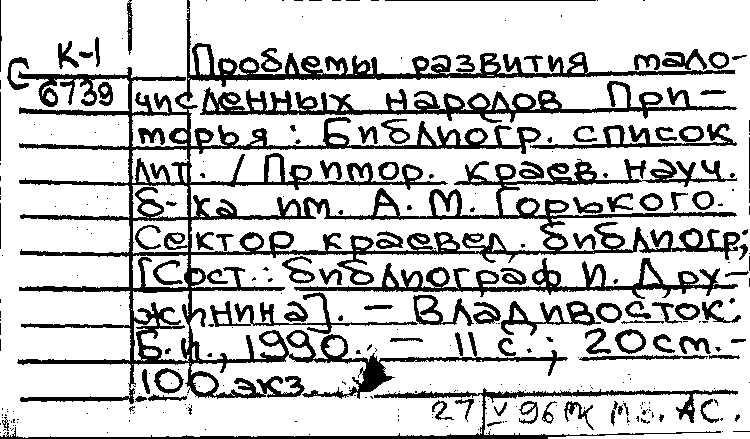 К-1
С 6739
Проблемы развития мало-
численных народов При-
морья : Библиогр. список
лит. / Примор. краев. науч.
б-ка им. А. М. Горького.
Сектор краевед. библиогр;
[Сост.: библиограф И. Дру-
жинина]. – Владивосток:
Б.и., 1990. – 11 с.; 20 см. -
100 экз.
27/V 96 АС.